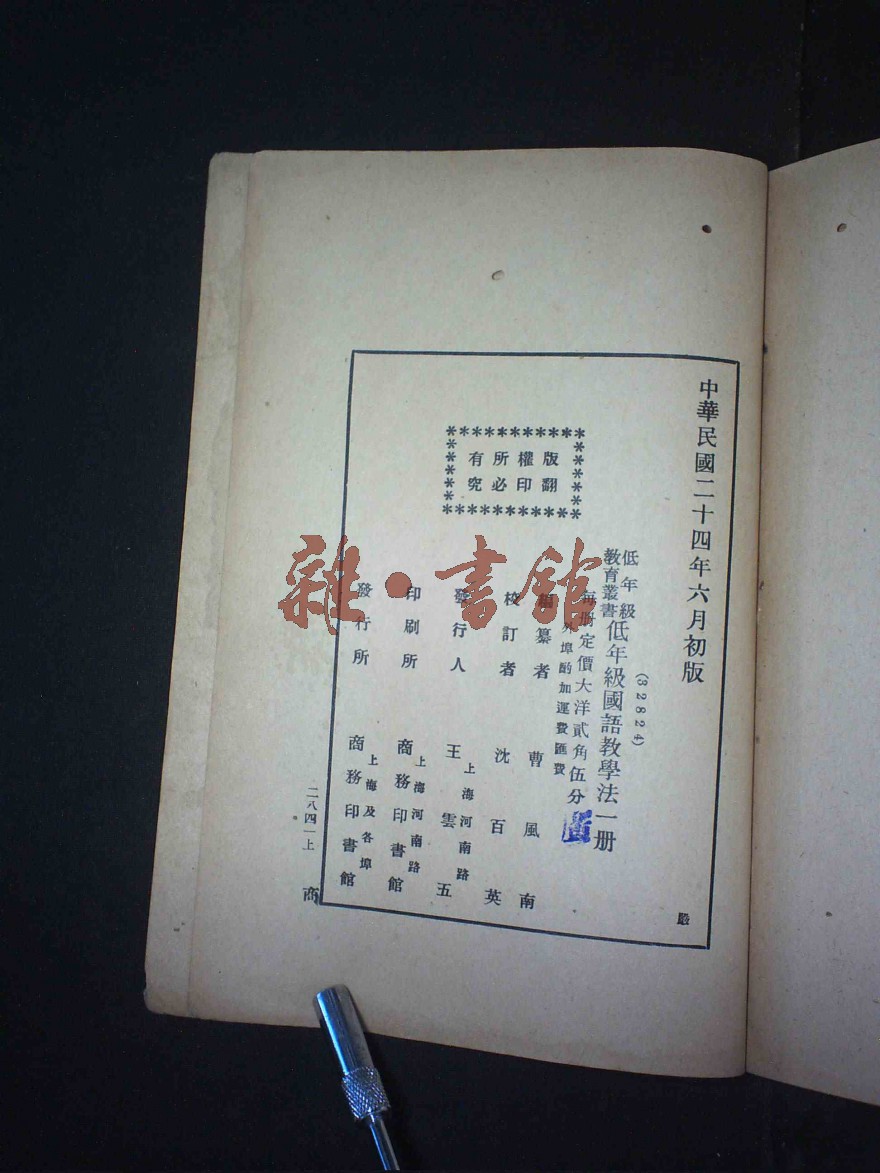 中華民國二十四年六月初版
(32824)
低年級
教育叢書
低年級國語教學法一册
每册定價大洋貳角伍分
外埠酌加運費匯費
版權所有
翻印必究
編纂者 曹風南
校訂者 沈百英
發行人 王雲五
上海河南路
印刷所 商務印書館
上海河南路
發行所 商務印書館
上海及各埠
嚴
二八四一上
商
雜·書館